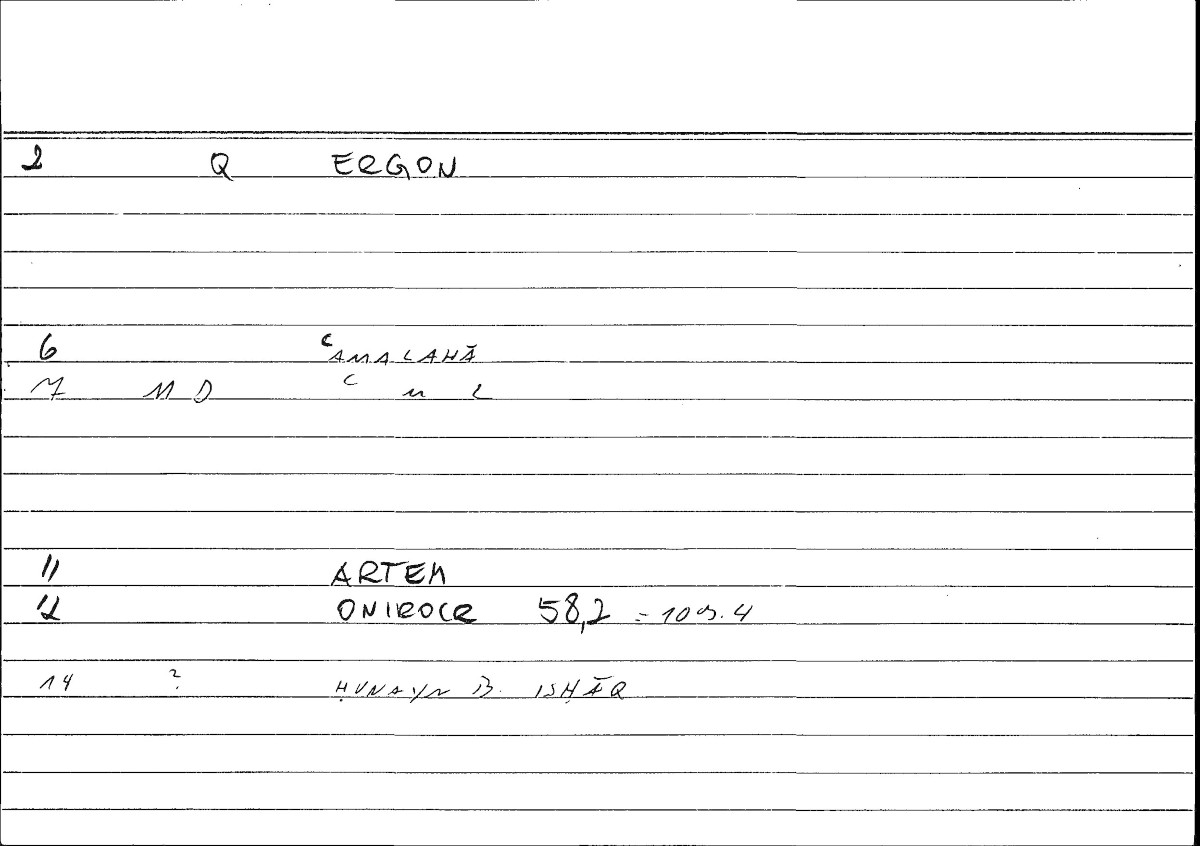 2 Q ERGON
6 ʿAMALAHĀ
7 MD ʿ m L
11 ARTEM
12 ONIROCR 58,2 = 109.4
14 ? ḤUNAYN B. ISḤĀQ